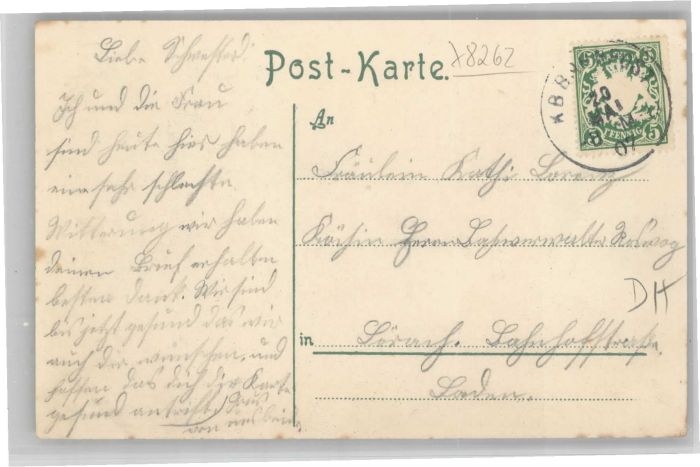 Liebe Schwester!
Ich und die Frau
sind heute hier haben
eine sehr schlechte
Witterung wir haben
deinen Brief erhalten
besten Dank. Wir sind
bis jetzt gesund das wir
auch dir wünschen, und
hoffen das dich die Karte
gesund antrifft. Grus
von uns beide.
Post-Karte.
78262
5
BAYERN
PFENNIG
5
20
MAI
07
An
Fräulein Kathi Lorenz
Köchin Herrn Bahnverwalter
in Lörach. Bahnhofstraße.
Baden.
DH